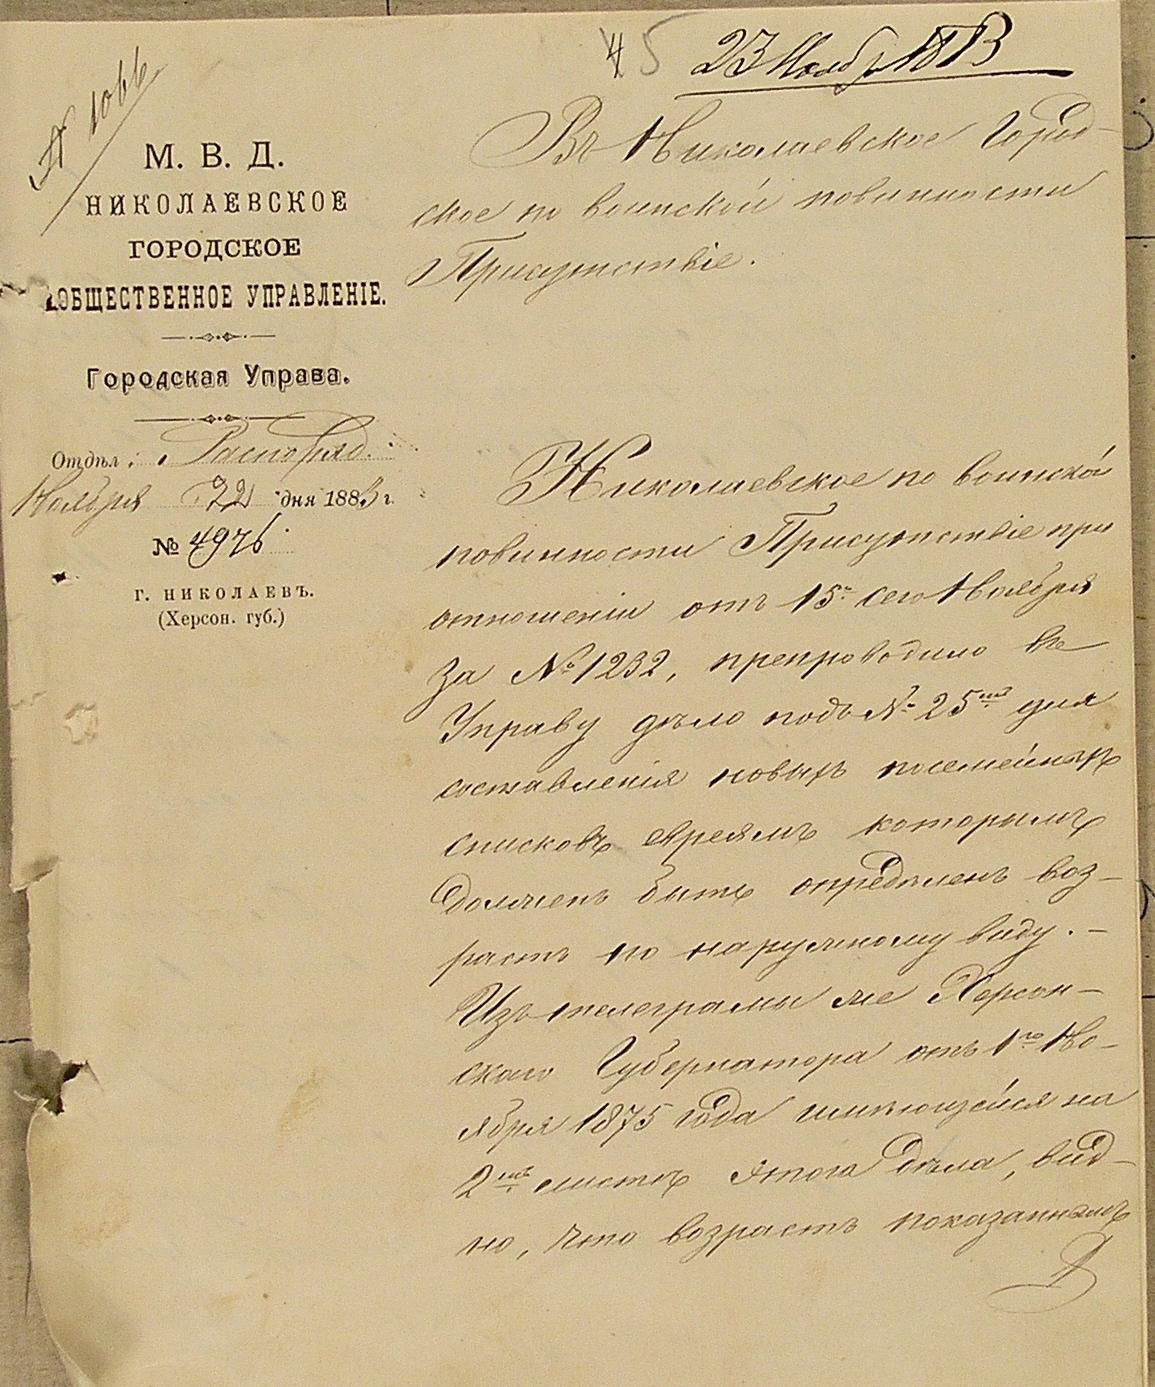 45
23 Ноябр 1883
№ 1066
М. В. Д.
НИКОЛАЕВСКОЕ
ГОРОДСКОЕ
ОБЩЕСТВЕННОЕ УПРАВЛЕНІЕ.
Городская Управа.
Отдѣл. Распоряд.
Ноября 22 дня 1883 г.
№ 4976
г. НИКОЛАЕВЪ.
(Херсон. губ.)
Въ Николаевское Город-
ское по воинской повинности
Присутствіе.
Николаевское по воинской
повинности Присутствіе при
отношеніи отъ 15го сего Ноября
за № 1232, препроводило въ
Управу дѣло подъ № 25мъ для
составленія новыхъ посемейныхъ
списковъ евреямъ которымъ
долженъ быть опредѣленъ воз-
растъ по наружному виду. –
Изъ телеграмы же Херсон-
скаго Губернатора отъ 1го Но-
ября 1875 года имѣющейся на
2мъ листѣ этого дѣла, вид-
но, что возрастъ показаннымъ